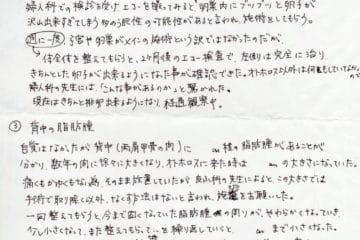 婦人科での検診を受けエコーを撮ってみると、卵巣内にプツプツと卵子が
沢山出来すぎてしまう 嚢 の可能性があると言われ、施術をしてもらう。
週に一度、子宮や卵巣がメインの施術という訳ではなかったのだが、
体全体を整えてもらうと、2ヶ月後のエコー検査で、左側は完全に治り、
きちんとした卵子が出来るようになった事が確認できた。オトホロス以外は何もしていなかったので
婦人科の先生には、「こんな事があるのか」と驚かれた。
現在はきちんと排卵が出来るようになり、経過観察中。
③ 背中の脂肪腫
自覚はなかったが背中(両肩甲骨の内)に cm程の脂肪腫があることが
分かり、数年の内に徐々に大きくなり、オトホロスに来た時は cmの大きさになっていた。
痛くもかゆくもない為、そのまま放置していたが、良山科の先生によると、この大きさでは
手術で取り除く以外、なくす方法はないと言われ、施術をお願いした。
一回整えてもらうと、今まで固くなっていた脂肪腫の周りが、やわらかくなっていき、
少し小さくなって、また整えてもらって…を繰り返していくと、 cmまで小さくなった。
大きさになって